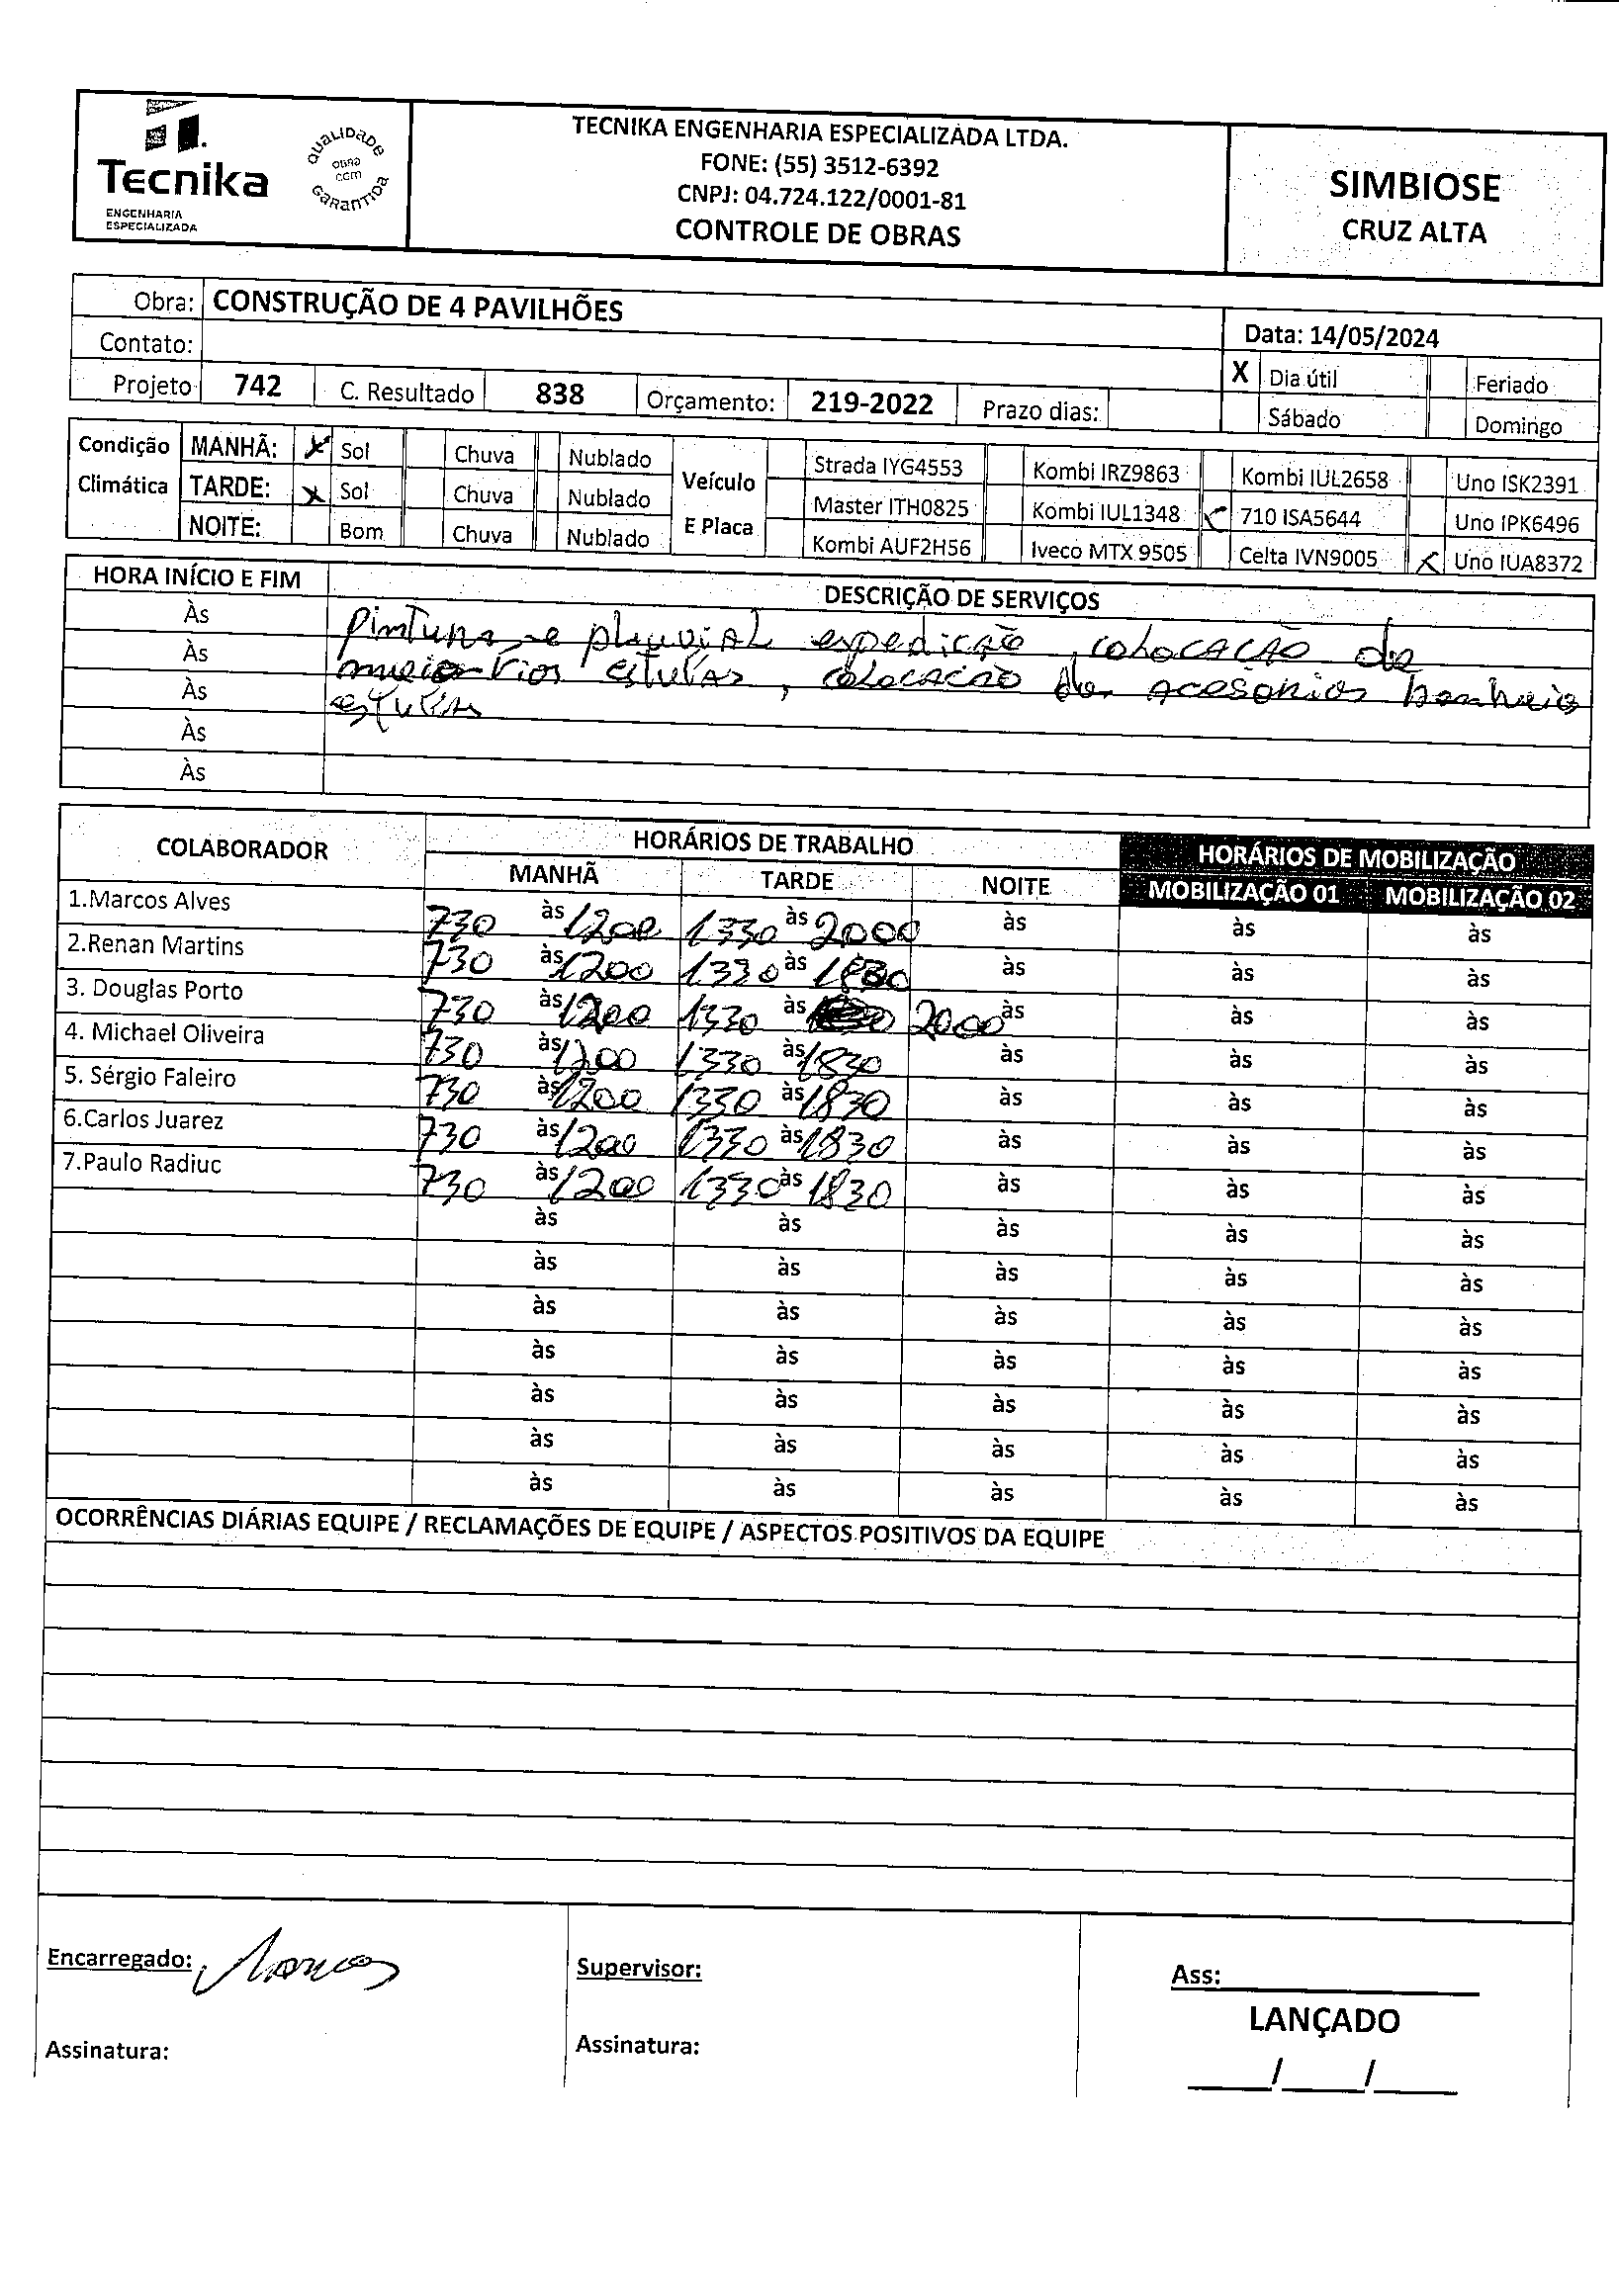 Tecnika
ENGENHARIA
ESPECIALIZADA
QUALIDADE
obra
com
GARANTIDA
TECNIKA ENGENHARIA ESPECIALIZADA LTDA.
FONE: (55) 3512-6392
CNPJ: 04.724.122/0001-81
CONTROLE DE OBRAS
SIMBIOSE
CRUZ ALTA
Obra: CONSTRUÇÃO DE 4 PAVILHÕES
Contato:
Data: 14/05/2024
Projeto 742 C. Resultado 838 Orçamento: 219-2022 Prazo dias:
X Dia útil Feriado
Sábado Domingo
Condição Climática
MANHÃ: X Sol Chuva Nublado
TARDE: X Sol Chuva Nublado
NOITE: Bom Chuva Nublado
Veículo E Placa
Strada IYG4553 Kombi IRZ9863 Kombi IUL2658 Uno ISK2391
Master ITH0825 Kombi IUL1348 X 710 ISA5644 Uno IPK6496
Kombi AUF2H56 Iveco MTX 9505 Celta IVN9005 X Uno IUA8372
HORA INÍCIO E FIM DESCRIÇÃO DE SERVIÇOS
Às Pintura e pluvial expedição, colocação de
Às estufas, colocacão de acesorios banheio
Às estufas
Às
Às
COLABORADOR HORÁRIOS DE TRABALHO HORÁRIOS DE MOBILIZAÇÃO
MANHÃ TARDE NOITE MOBILIZAÇÃO 01 MOBILIZAÇÃO 02
1.Marcos Alves 730 às 1200 1330 às 2000 às às às
2.Renan Martins 730 às 1200 1330 às 1830 às às às
3. Douglas Porto 730 às 1200 1330 às 2000 às às às
4. Michael Oliveira 730 às 1200 1330 às 1830 às às às
5. Sérgio Faleiro 730 às 1200 1330 às 1830 às às às
6.Carlos Juarez 730 às 1200 1330 às 1830 às às às
7.Paulo Radiuc 730 às 1200 1330 às 1830 às às às
às às às às às
às às às às às
às às às às às
às às às às às
às às às às às
às às às às às
às às às às às
OCORRÊNCIAS DIÁRIAS EQUIPE / RECLAMAÇÕES DE EQUIPE / ASPECTOS POSITIVOS DA EQUIPE
Encarregado: Marcos
Supervisor:
Ass:
LANÇADO
Assinatura:
Assinatura:
___/___/___